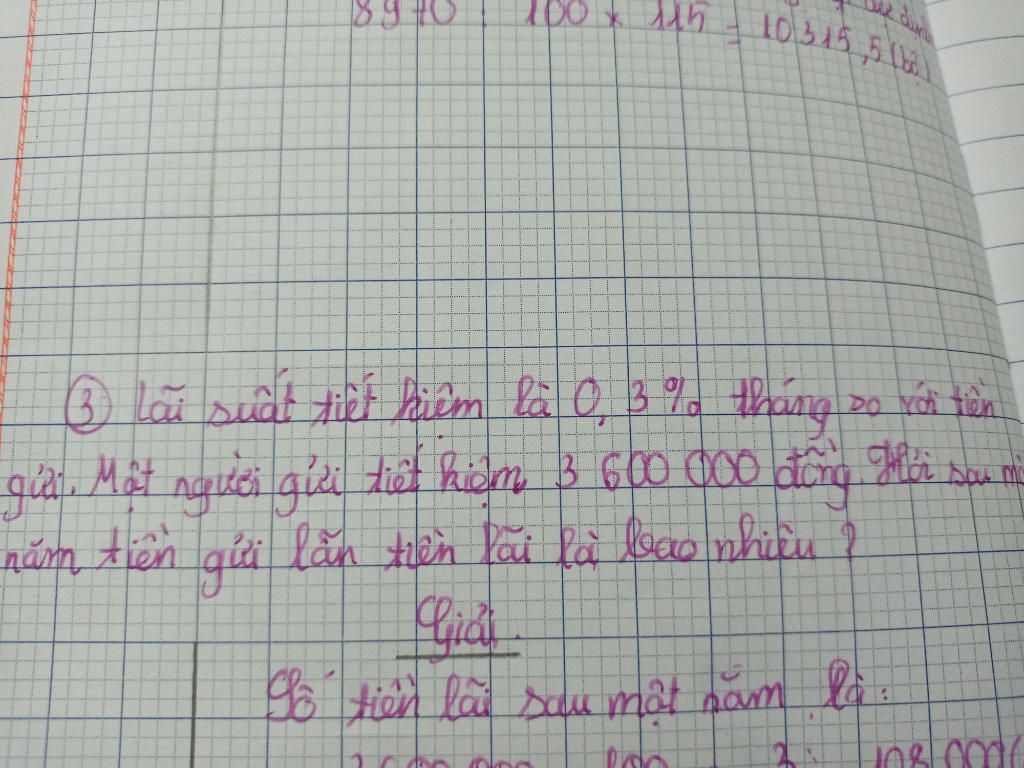 8970 : 100 × 115 = 10315,5 (bộ)
③ Lãi suất tiết kiệm là 0,3% tháng so với tiền
gửi. Một người gửi tiết kiệm 3 600 000 đồng. Hỏi sau
năm tiền gửi lẫn tiền lãi là bao nhiêu?
Giải.
Số tiền lãi sau một năm là: